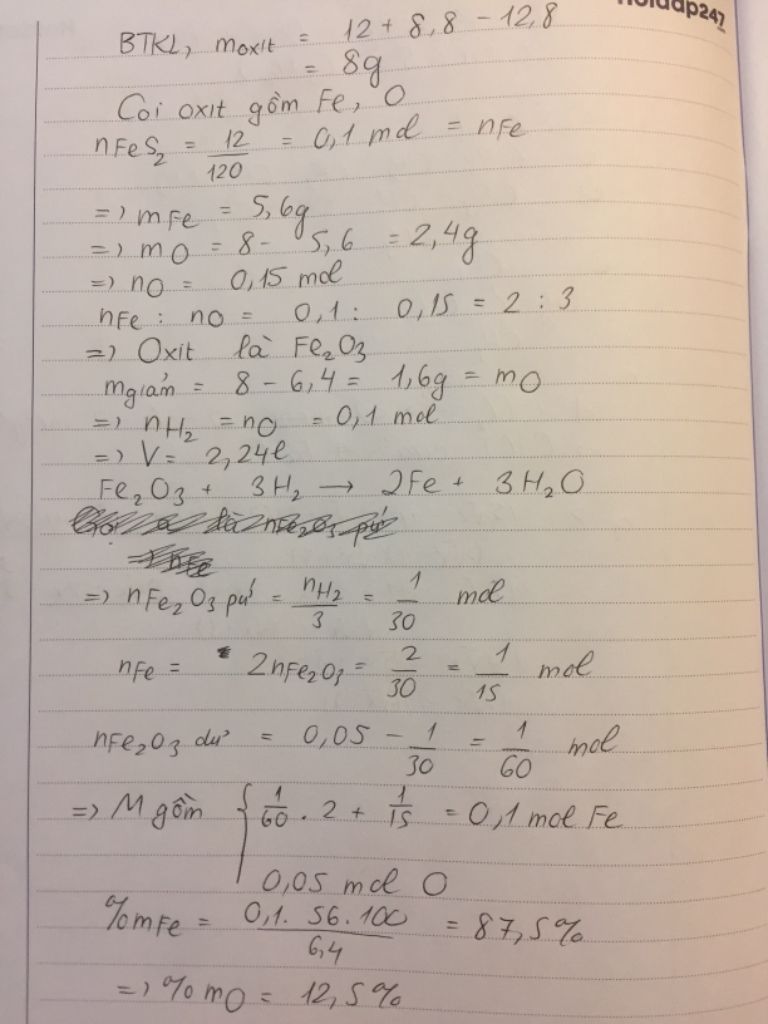 hoidap247
BTKL, moxit = 12 + 8,8 - 12,8
= 8g
Coi oxit gồm Fe, O
nFeS₂ = 12/120 = 0,1 mol = nFe
=> mFe = 5,6g
=> mO = 8 - 5,6 = 2,4g
=> nO = 0,15 mol
nFe : nO = 0,1 : 0,15 = 2 : 3
=> Oxit là Fe₂O₃
mgiảm = 8 - 6,4 = 1,6g = mO
=> nH₂ = nO = 0,1 mol
=> V = 2,24l
Fe₂O₃ + 3H₂ → 2Fe + 3H₂O
=> nFe₂O₃ pứ = nH₂/3 = 1/30 mol
nFe = 2nFe₂O₃ = 2/30 = 1/15 mol
nFe₂O₃ dư = 0,05 - 1/30 = 1/60 mol
=> M gồm { 1/60 . 2 + 1/15 = 0,1 mol Fe
0,05 mol O
%mFe = 0,1. 56. 100/6,4 = 87,5%
=> %mO = 12,5%